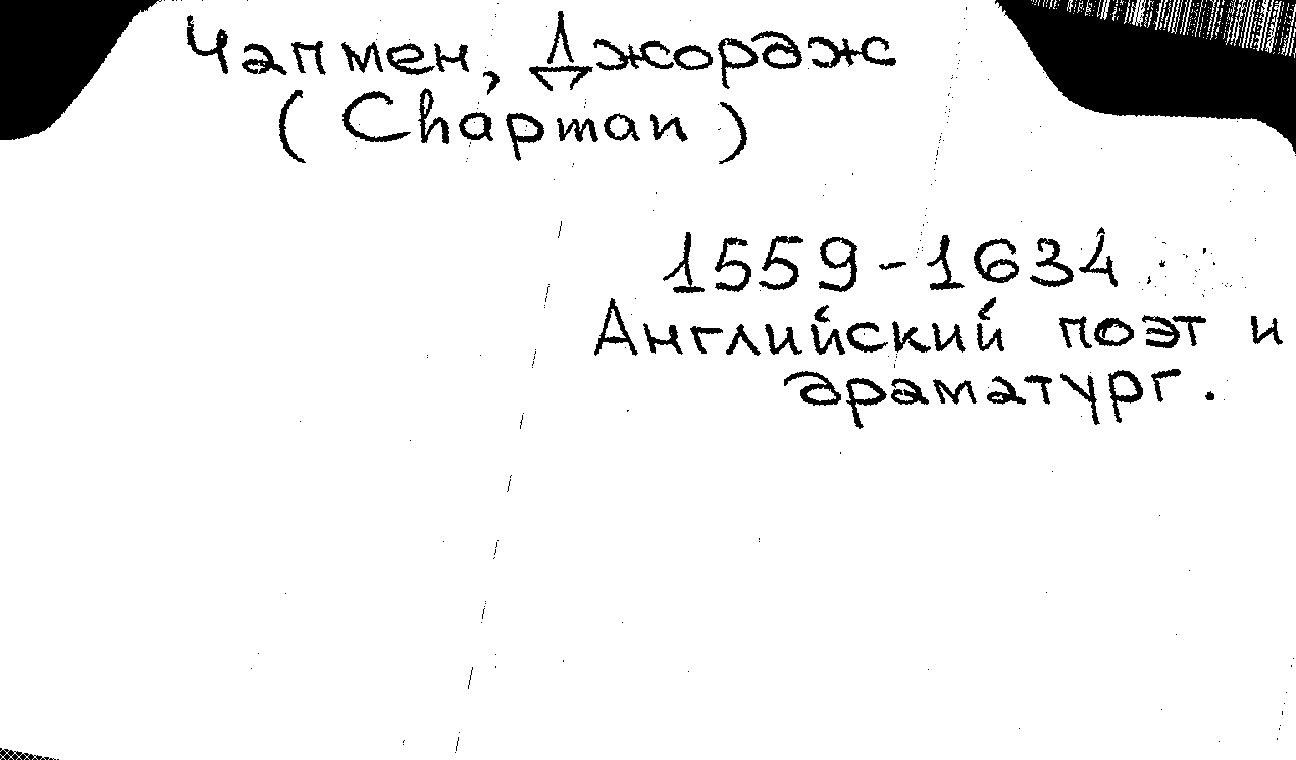 Чапмен, Джордж
( Chapman )
1559-1634
Английский поэт и
драматург.